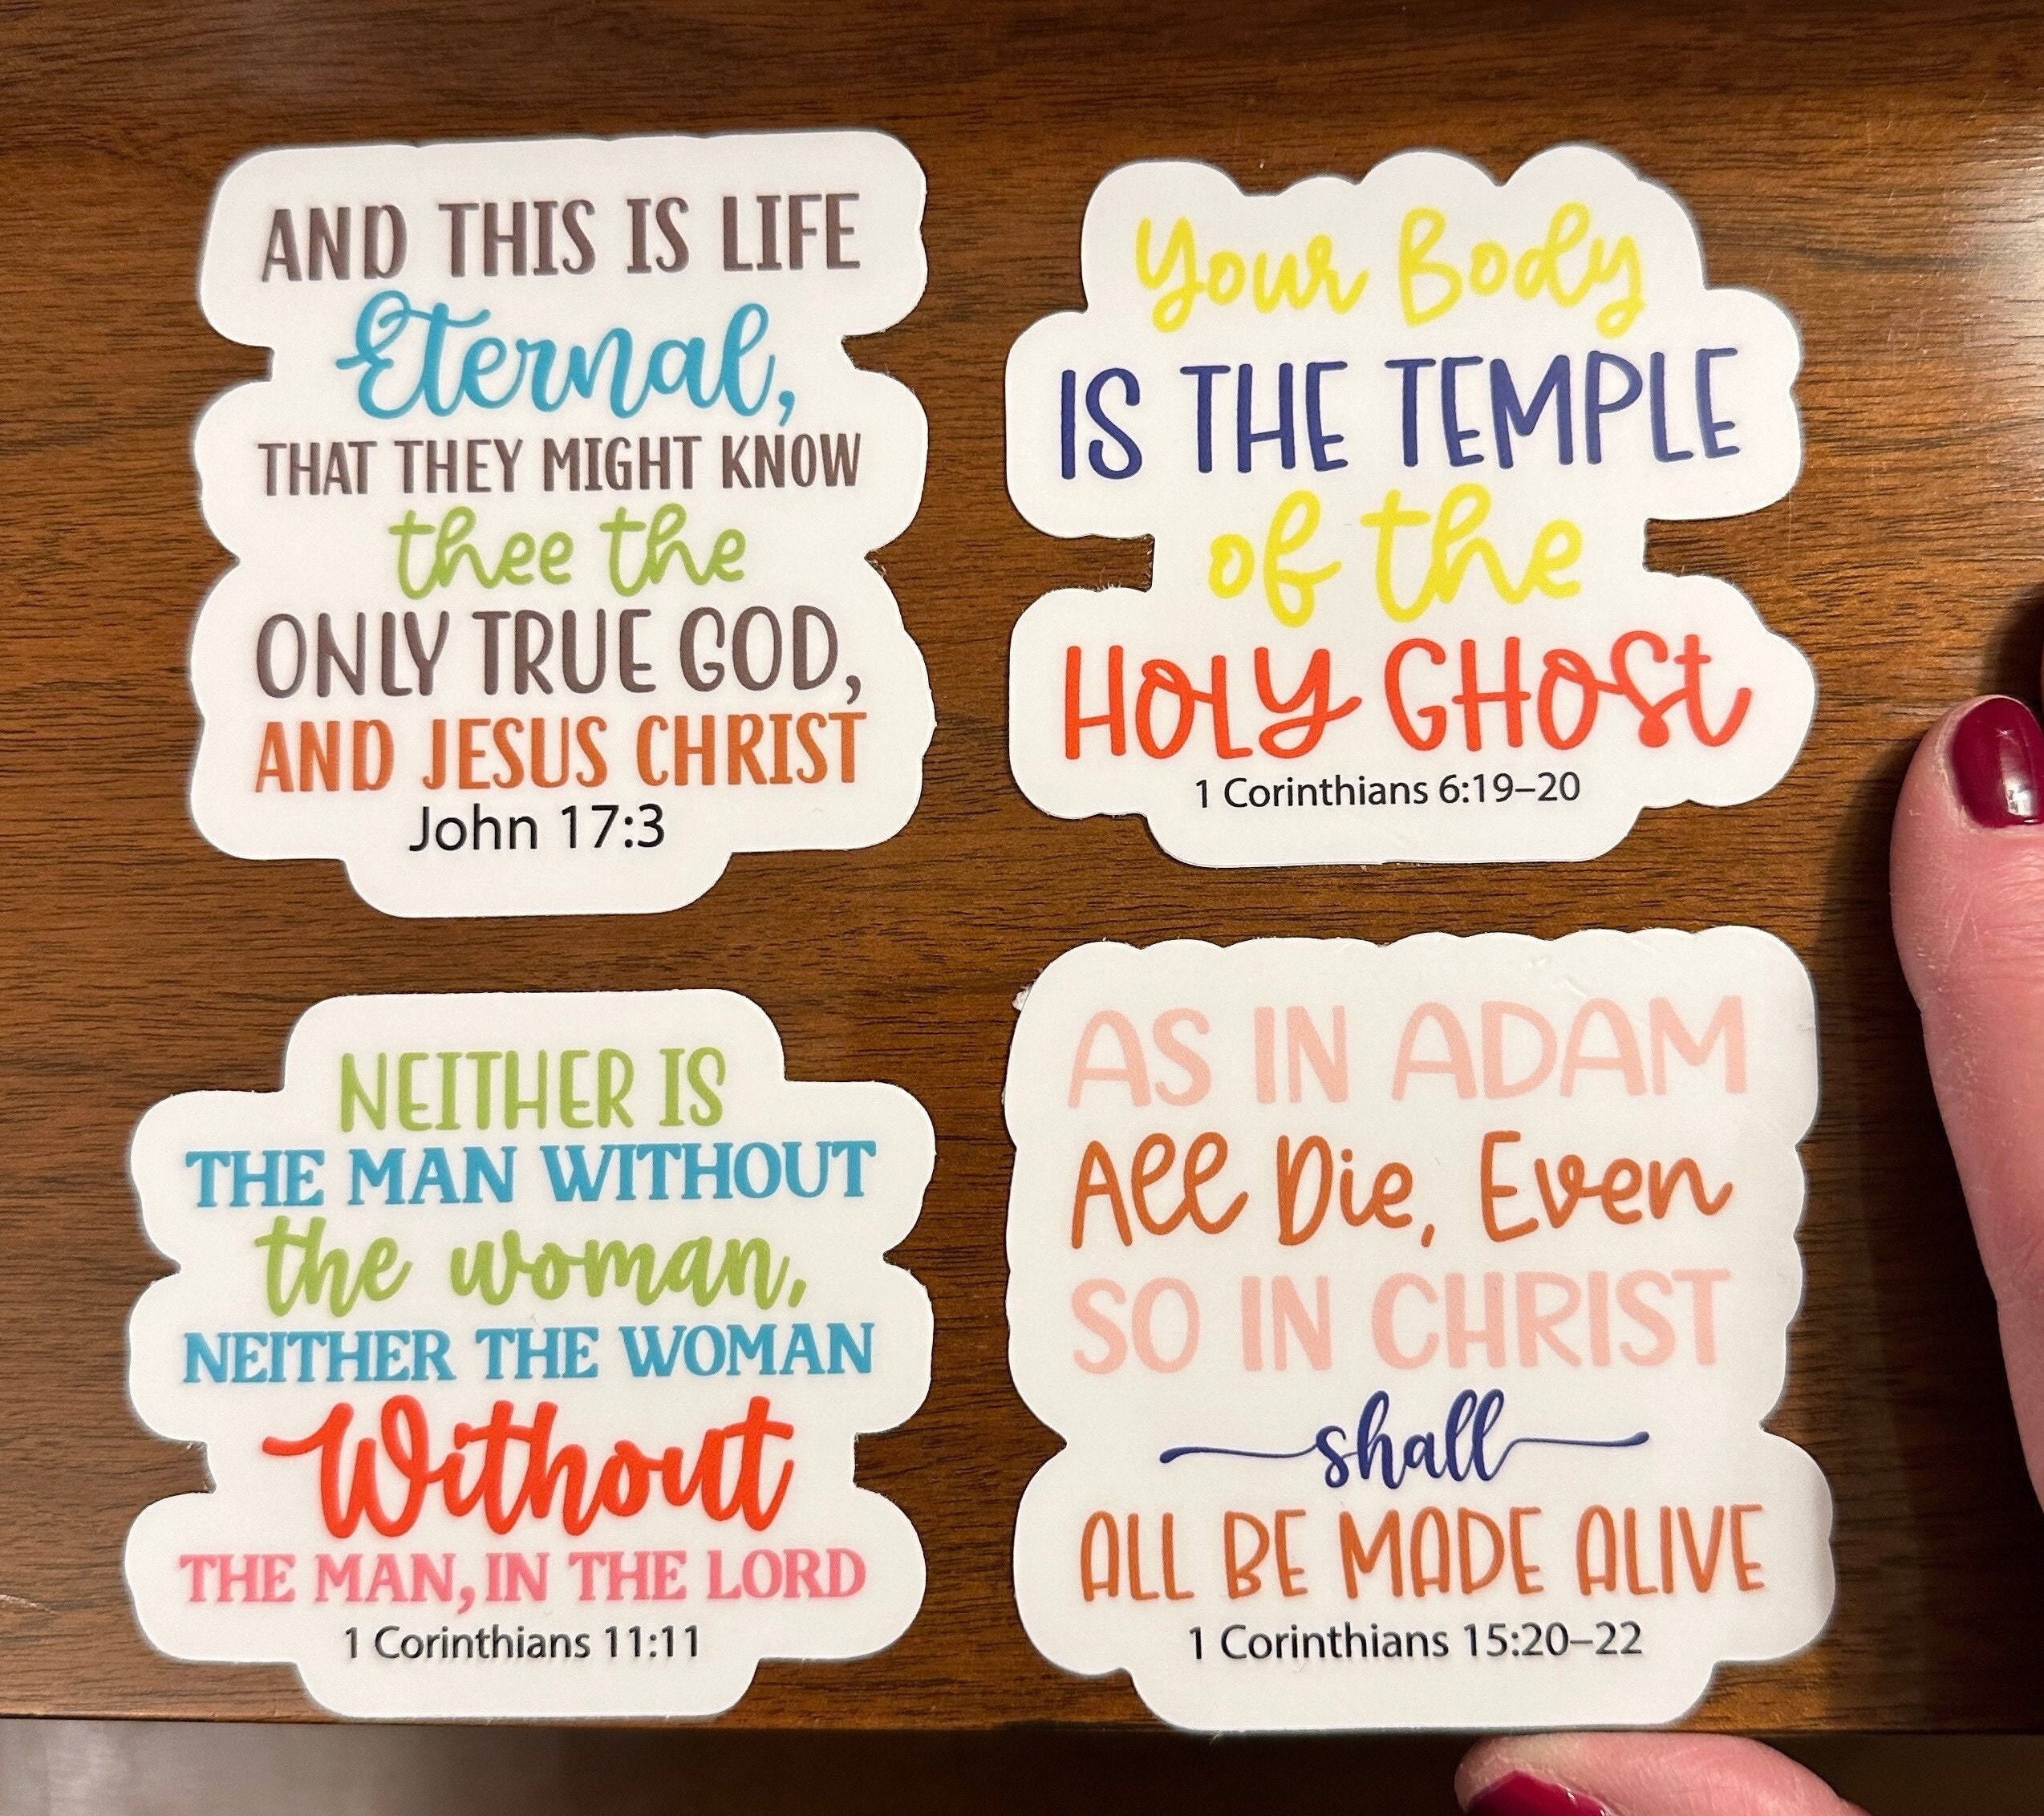 AND THIS IS LIFE
Eternal,
THAT THEY MIGHT KNOW
thee the
ONLY TRUE GOD,
AND JESUS CHRIST
John 17:3
Your Body
IS THE TEMPLE
of the
HOLY GHOST
1 Corinthians 6:19–20
NEITHER IS
THE MAN WITHOUT
the woman,
NEITHER THE WOMAN
Without
THE MAN, IN THE LORD
1 Corinthians 11:11
AS IN ADAM
All Die, Even
SO IN CHRIST
shall
ALL BE MADE ALIVE
1 Corinthians 15:20–22